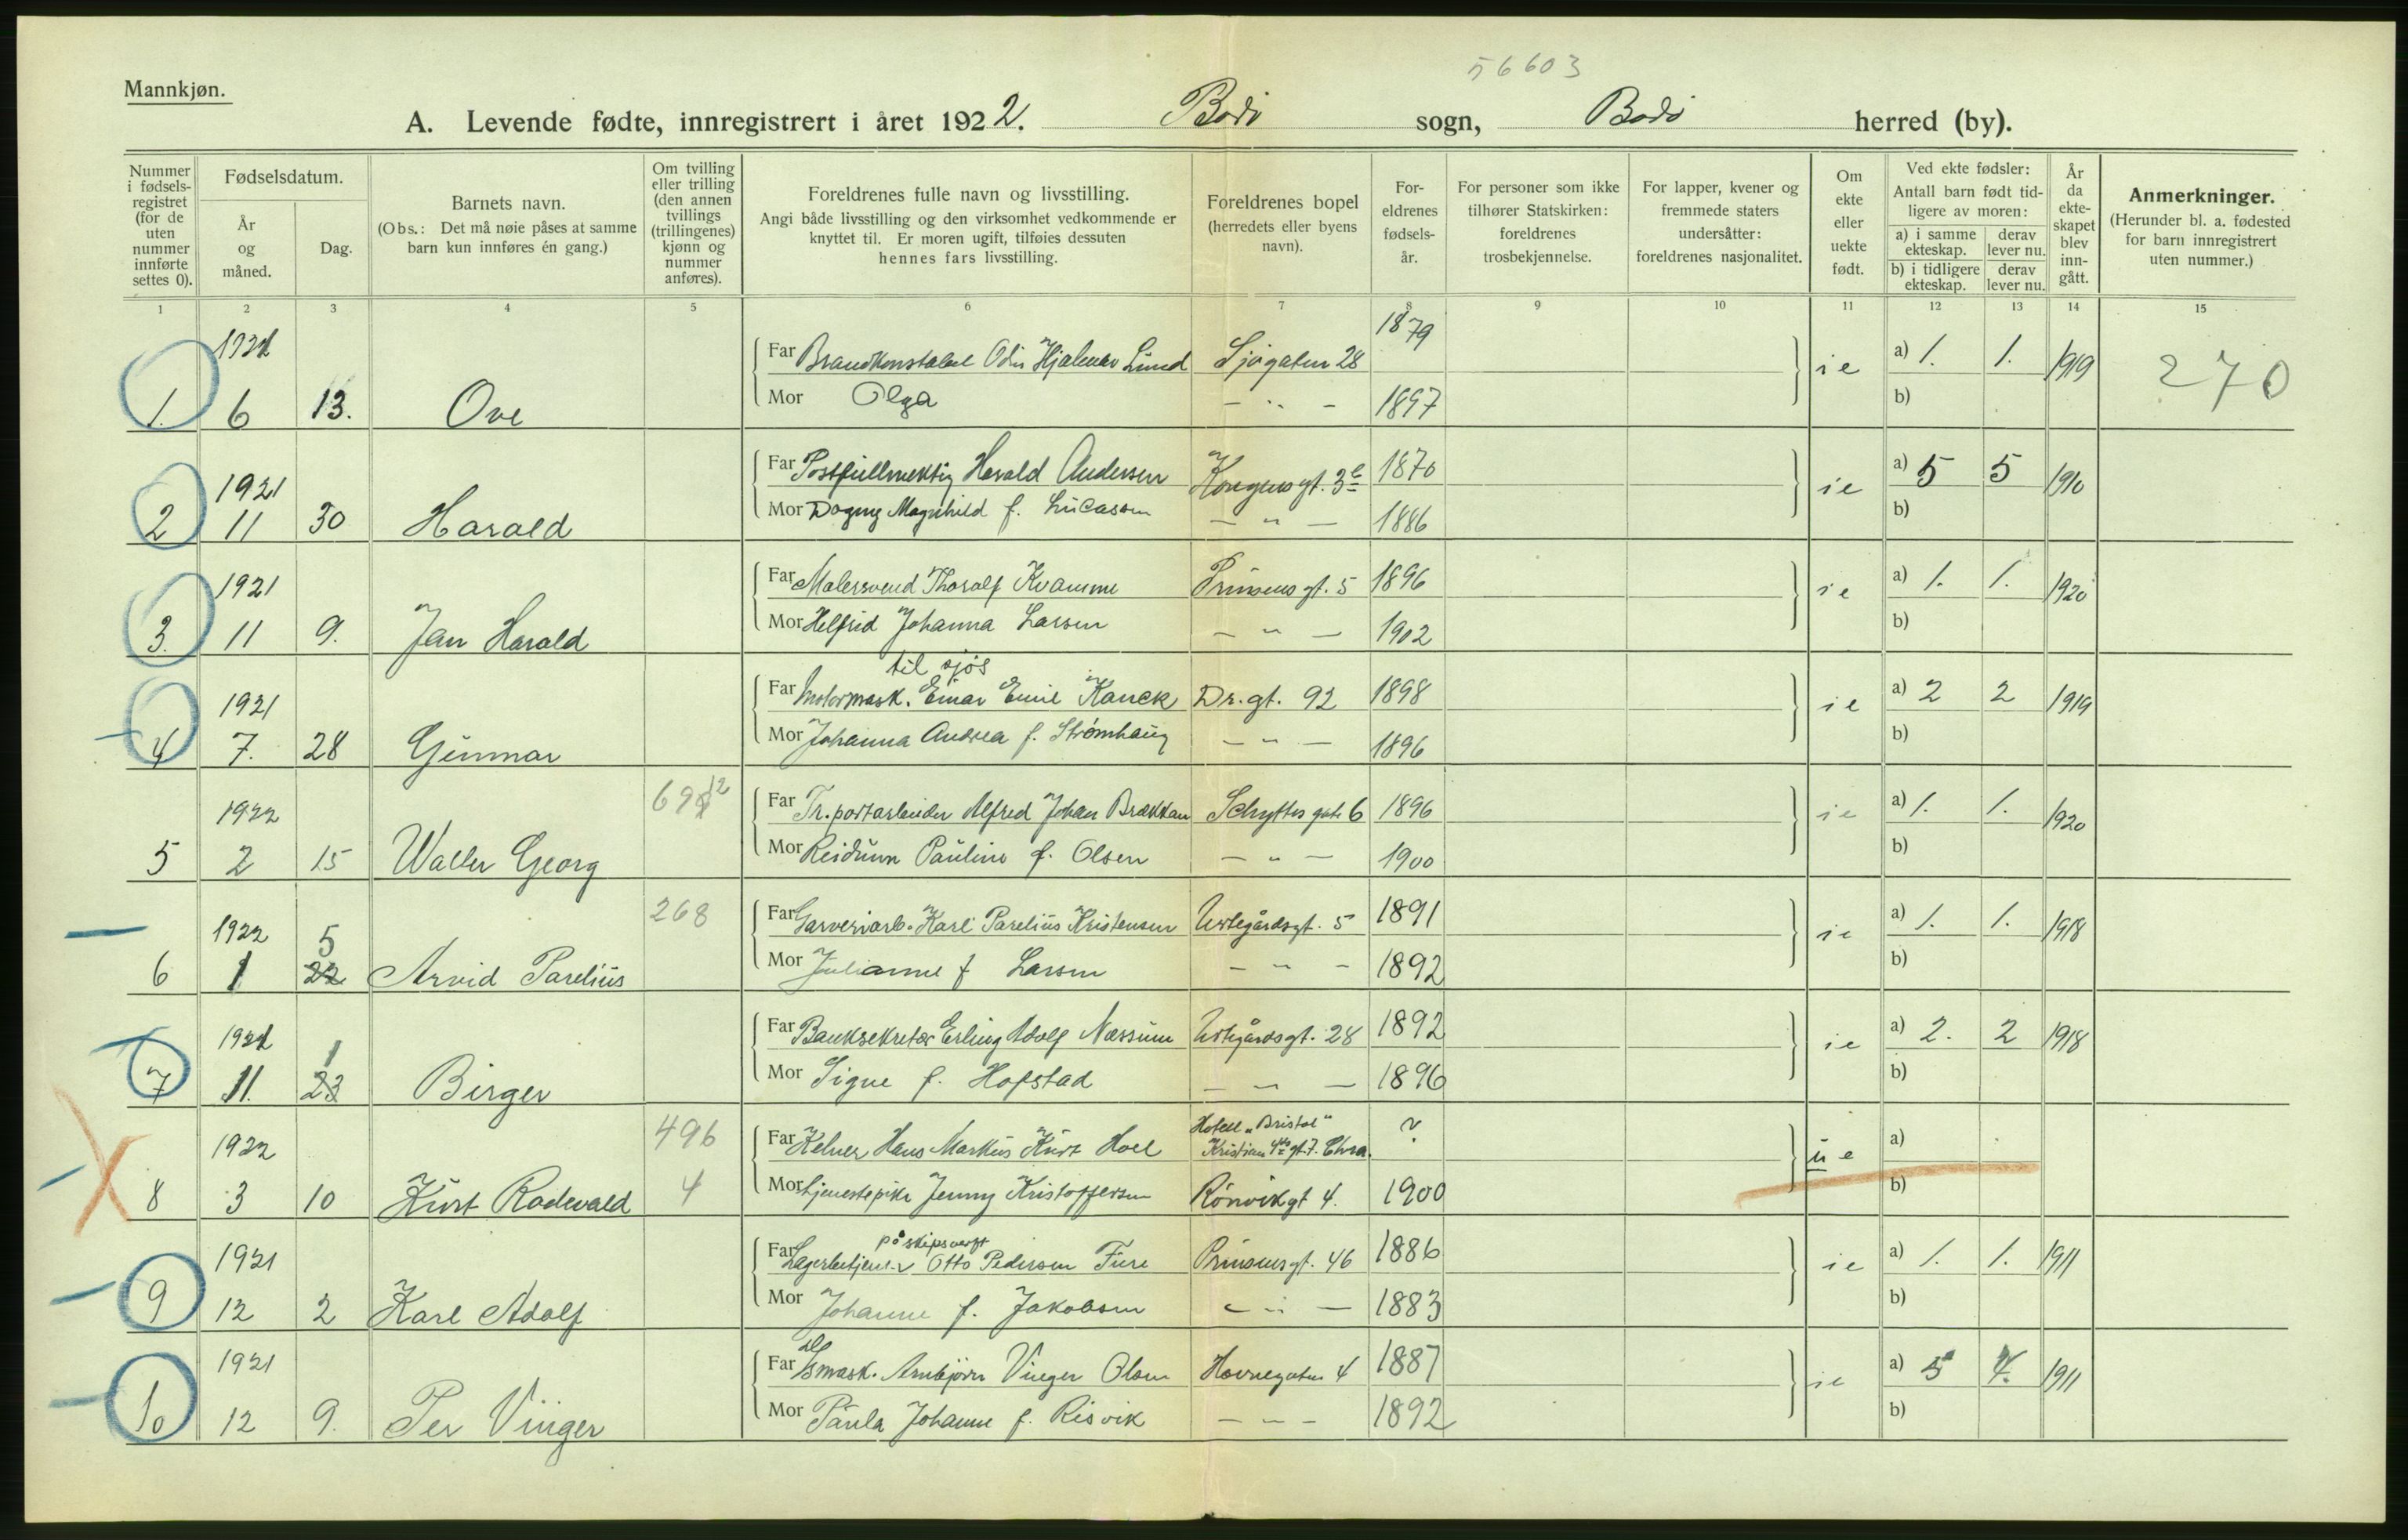 56603
Mannkjøn.
A. Levende fødte, innregistrert i året 1922. Bodö sogn, Bodö herred (by).
Nummer i fødsels-registret (for de uten nummer innførte settes 0).
Fødselsdatum.
År og måned.
Dag.
Barnets navn.
(Obs.: Det må nøie påses at samme barn kun innføres én gang.)
Om tvilling eller trilling (den annen tvillings (trillingenes) kjønn og nummer anføres).
Foreldrenes fulle navn og livsstilling.
Angi både livsstilling og den virksomhet vedkommende er knyttet til. Er moren ugift, tilføies dessuten hennes fars livsstilling.
Foreldrenes bopel (herredets eller byens navn).
For-eldrenes fødsels-år.
For personer som ikke tilhører Statskirken: foreldrenes trosbekjennelse.
For lapper, kvener og fremmede staters undersåtter: foreldrenes nasjonalitet.
Om ekte eller uekte født.
Ved ekte fødsler:
Antall barn født tid-ligere av moren:
a) i samme ekteskap. derav lever nu.
b) i tidligere ekteskap. derav lever nu.
År da ekte-skapet blev inn-gått.
Anmerkninger.
(Herunder bl. a. fødested for barn innregistrert uten nummer.)
1 2 3 4 5 6 7 8 9 10 11 12 13 14 15
1921 Far Brandkonstabel Odin Hjalmar Lund Sjøgaten 28 1879 ie a) 1. 1. 1919 270
1. 6 13. Ove Mor Olga – " – 1897 b)
1921 Far Postfullmektig Harald Andersen Kongens gt. 3 1870 ie a) 5 5 1910
2 11 30 Harald Mor Dagny Magnhild f. Lucassen – " – 1886 b)
1921 Far Malersvend Thoralf Kvamme Prinsens gt. 5 1896 ie a) 1. 1. 1920
3. 11 9. Jan Harald Mor Helfrid Johanna Larsen – " – 1902 b)
til sjøs
1921 Far Motormask. Einar Emil Kanck Dr. gt. 92 1898 ie a) 2 2 1919
4 7. 28 Gunnar Mor Johanna Andrea f. Strømhaug – " – 1896 b)
1922 Far Tr.portarbeider Alfred Johan Brækkan 6 1896 ie a) 1. 1. 1920
5 2 15 Walter Georg Mor Reidunn Pauline f. Olsen – " – 1900 b)
268
1922 5 Far Garveriarb. Karl Parelius Kristensen Urtegårdsgt. 5 1891 ie a) 1. 1. 1918
6 1 22 Arvid Parelius Mor Julianne f Larsen – " – 1892 b)
1921 1 Far Banksekretær Erling Adolf Næssum Urtegårdsgt. 28 1892 ie a) 2. 2 1918
7 11. 23 Birger Mor Signe f. Hofstad – " – 1896 b)
496 Hotell „Bristol"
1922 Far Kelner Hans Markus Kurt Hoel Kristian 4des gt. 7. Chra. ? ue a)
8 3 10 Kurt Rodevald 4 Mor tjenestepike Jenny Kristoffersen Rönvikgt 4. 1900 b)
på skipsverft
1921 Far Lagerbetjent v Otto Pedersen Fure Prinsensgt. 46 1886 ie a) 1. 1. 1911
9 12 2 Karl Adolf Mor Johanne f. Jakobsen – " – 1883 b)
1921 Far Arnbjørn Vinger Olsen Havnegaten 4 1887 ie a) 5 4. 1911
10 12 9. Per Vinger Mor Paula Johanne f. Risvik – " – 1892 b)